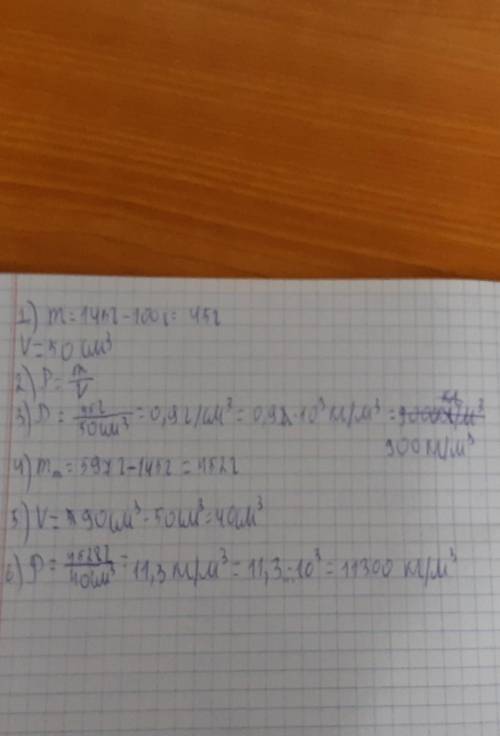 1) m = 145г - 100г = 45г
V = 50 см³
2) P = m/V
3) P = 45г/50см³ = 0,9 г/см³ = 0,9 · 10³ кг/м³ =
900 кг/м³
4) m = 597г - 145г = 452г
5) V = 90см³ - 50см³ = 40см³
6) P = 452г/40см³ = 11,3 кг/м³ = 11,3 · 10³ = 11300 кг/м³